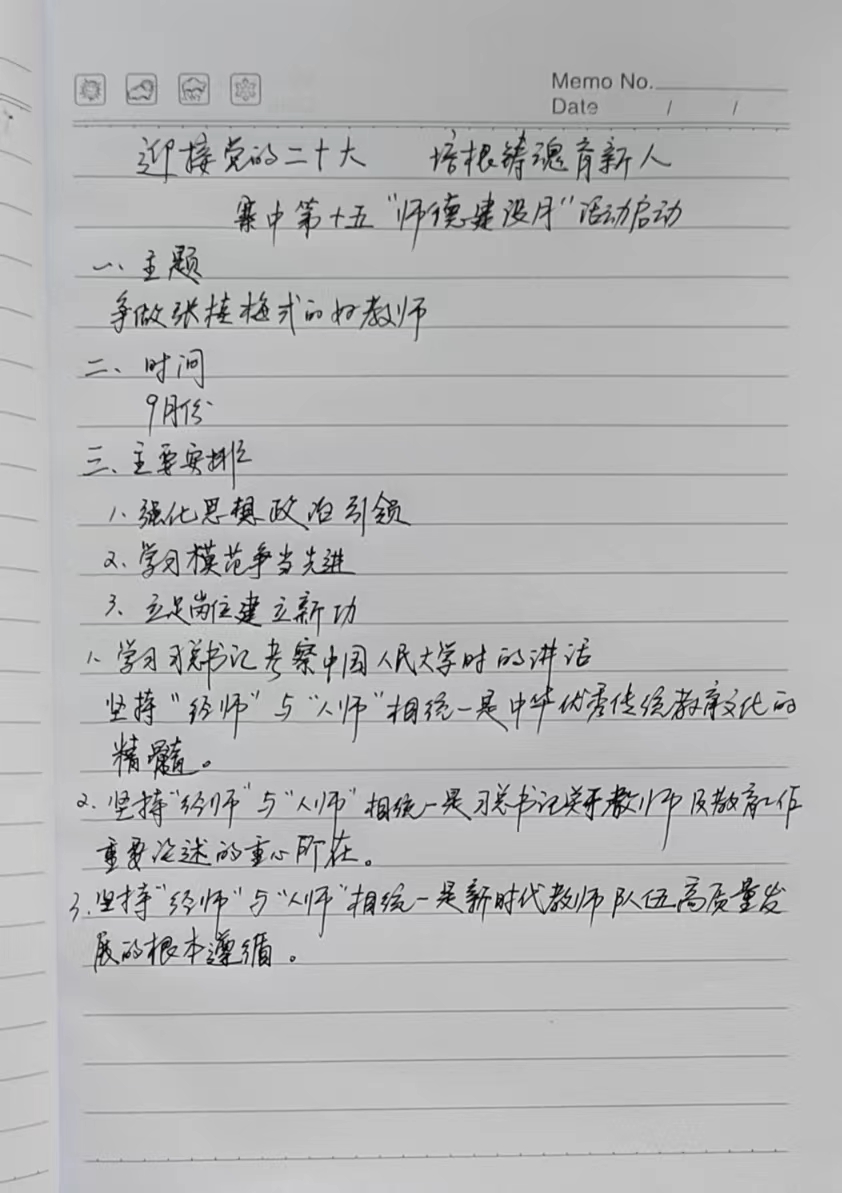 Memo No.
Date / /
迎接党的二十大 培根铸魂育新人
寨中第十五“师德建设月”活动启动
一、主题
争做张桂梅式的好教师
二、时间
9月份
三、主要安排
1、强化思想政治引领
2、学习模范争当先进
3、立足岗位建立新功
1、学习习总书记考察中国人民大学时的讲话
坚持“经师”与“人师”相统一是中华优秀传统教育文化的
精髓。
2、坚持“经师”与“人师”相统一是习总书记关于教师及教育工作
重要论述的重心所在。
3、坚持“经师”与“人师”相统一是新时代教师队伍高质量发
展的根本遵循。